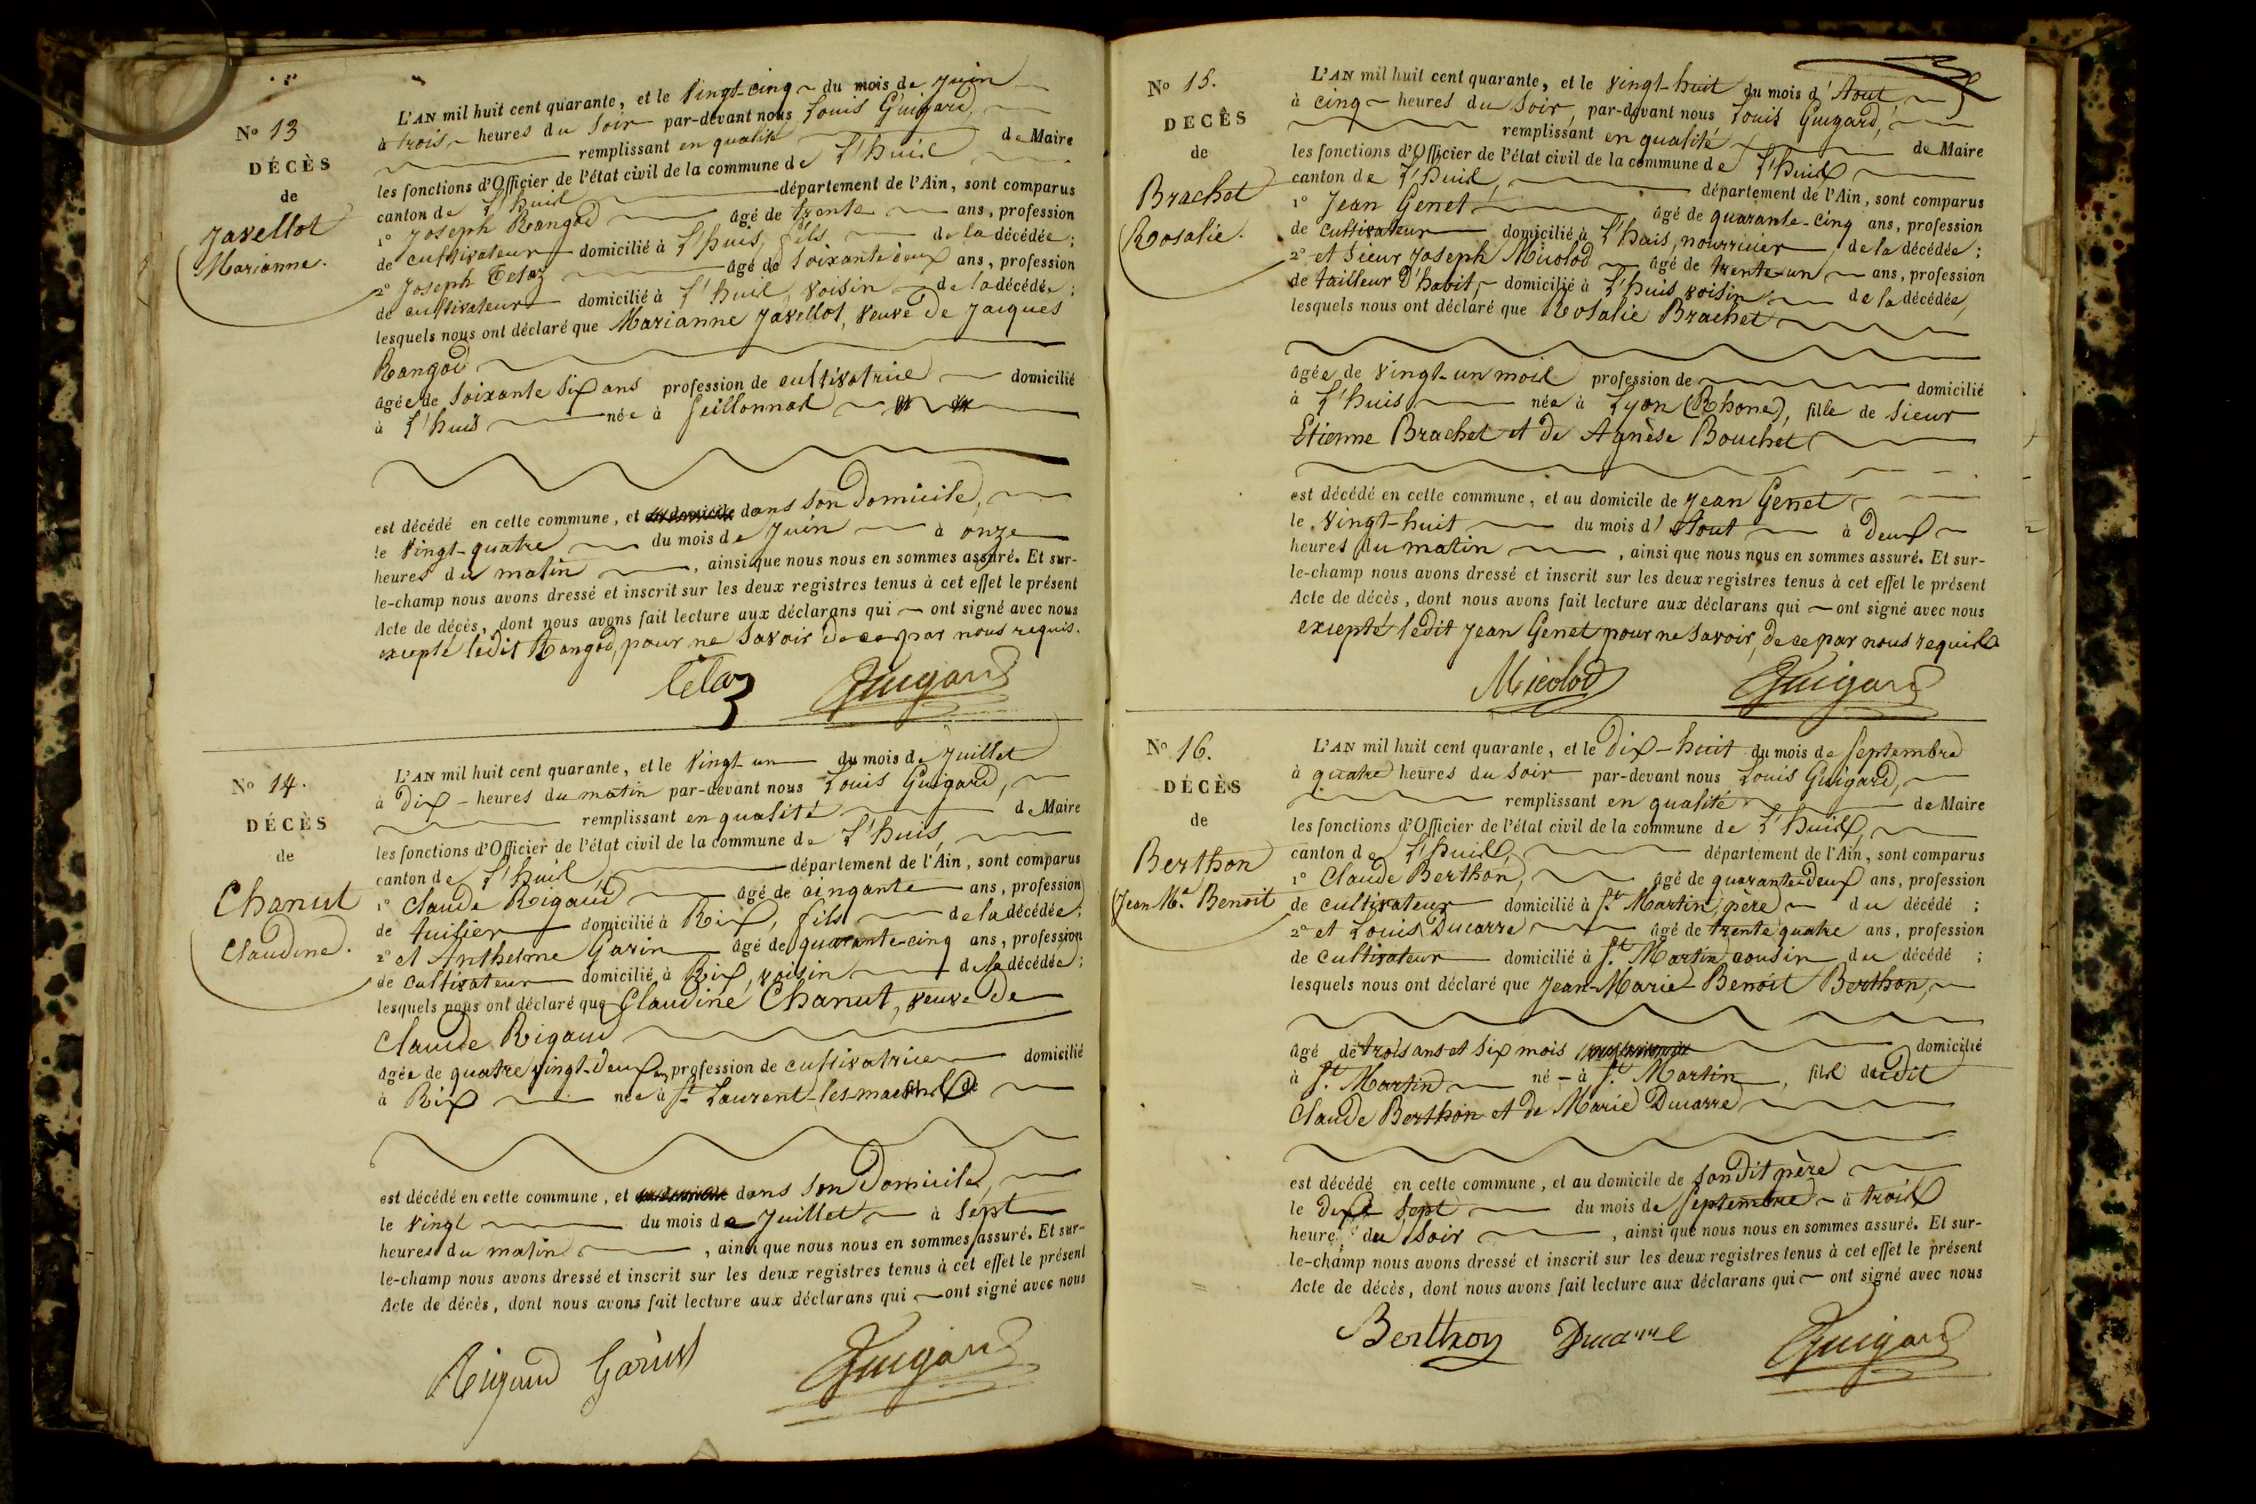 Nº 13
DÉCÈS
de
Javellot
Marianne.
L'AN mil huit cent quarante, et le vingt-cinq du mois de Juin
à trois heures du soir par-devant nous Louis Guigard,
remplissant en qualité de Maire
les fonctions d'Officier de l'état civil de la commune de L'huis
canton de L'huis département de l'Ain, sont comparus
1º Joseph Rangod âgé de trente ans, profession
de cultivateur domicilié à L'huis, fils de la décédée;
2º Joseph Telaz âgé de soixante deux ans, profession
de cultivateur domicilié à L'huis, voisin de la décédée;
lesquels nous ont déclaré que Marianne Javellot, veuve de Jacques
Rangod
âgée de soixante six ans profession de cultivatrice domicilié
à L'huis née à Seillonnas
est décédé en cette commune, et au domicile dans son domicile,
le vingt-quatre du mois de Juin à onze
heures du matin, ainsi que nous nous en sommes assuré. Et sur-
le-champ nous avons dressé et inscrit sur les deux registres tenus à cet effet le présent
Acte de décès, dont nous avons fait lecture aux déclarans qui ont signé avec nous
excepté ledit Rangod, pour ne savoir de ce par nous requis.
Telaz Guigard
Nº 14.
DÉCÈS
de
Chanut
Claudine.
L'AN mil huit cent quarante, et le vingt un du mois de Juillet
à dix heures du matin par-devant nous Louis Guigard,
remplissant en qualité de Maire
les fonctions d'Officier de l'état civil de la commune de L'huis,
canton de L'huis département de l'Ain, sont comparus
1º Claude Rigaud âgé de cinqante ans, profession
de tuilier domicilié à Rix, fils de la décédée;
2º et Anthelme Garin âgé de quarante-cinq ans, profession
de cultivateur domicilié à Rix, voisin de la décédée;
lesquels nous ont déclaré que Claudine Chanut, veuve de
Claude Rigaud
âgée de quatre vingt-deux ans profession de cultivatrice domicilié
à Rix née à St. Laurent-les-macons
est décédé en cette commune, et dans son domicile,
le vingt du mois de Juillet à sept
heures du matin, ainsi que nous nous en sommes assuré. Et sur-
le-champ nous avons dressé et inscrit sur les deux registres tenus à cet effet le présent
Acte de décès, dont nous avons fait lecture aux déclarans qui ont signé avec nous
Rigaud Garin Guigard
Nº 15.
DÉCÈS
de
Brachet
Rosalie.
L'AN mil huit cent quarante, et le vingt-huit du mois d'Aout
à cinq heures du soir, par-devant nous Louis Guigard,
remplissant en qualité de Maire
les fonctions d'Officier de l'état civil de la commune de L'huis
canton de L'huis, département de l'Ain, sont comparus
1º Jean Genet âgé de quarante-cinq ans, profession
de cultivateur domicilié à L'huis, nourricier de la décédée;
2º et sieur Joseph Micolod âgé de trente-un ans, profession
de tailleur d'habit, domicilié à L'huis, voisin de la décédée,
lesquels nous ont déclaré que Rosalie Brachet
âgée de vingt-un mois profession de domicilié
à L'huis née à Lyon (Rhone), fille de sieur
Etienne Brachet et de Agnèse Bouchet
est décédé en cette commune, et au domicile de Jean Genet
le vingt-huit du mois d'Aout à deux
heures du matin, ainsi que nous nous en sommes assuré. Et sur-
le-champ nous avons dressé et inscrit sur les deux registres tenus à cet effet le présent
Acte de décès, dont nous avons fait lecture aux déclarans qui ont signé avec nous
excepté ledit Jean Genet pour ne savoir, de ce par nous requis
Micolod Guigard
Nº 16.
DÉCÈS
de
Berthon
Jean Mie. Benoit
L'AN mil huit cent quarante, et le dix-huit du mois de Septembre
à quatre heures du soir par-devant nous Louis Guigard,
remplissant en qualité de Maire
les fonctions d'Officier de l'état civil de la commune de L'huis,
canton de L'huis, département de l'Ain, sont comparus
1º Claude Berthon, âgé de quarante-deux ans, profession
de cultivateur domicilié à St. Martin, père du décédé;
2º et Louis Ducarre âgé de trente quatre ans, profession
de cultivateur domicilié à St. Martin cousin du décédé;
lesquels nous ont déclaré que Jean-Marie Benoit Berthon,
âgé de trois ans et six mois domicilié
à St. Martin né à St. Martin, fils dudit
Claude Berthon et de Marie Ducarre
est décédé en cette commune, et au domicile de sondit père
le dix sept du mois de Septembre à trois
heures du soir, ainsi que nous nous en sommes assuré. Et sur-
le-champ nous avons dressé et inscrit sur les deux registres tenus à cet effet le présent
Acte de décès, dont nous avons fait lecture aux déclarans qui ont signé avec nous
Berthon Ducarre Guigard